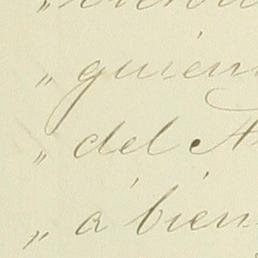 „ quien
„ del A
„ á bien